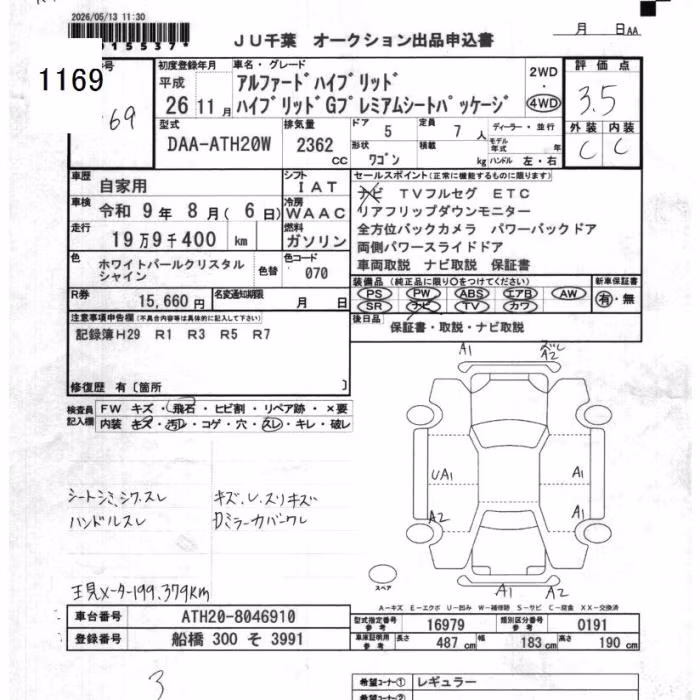 2026/05/13 11:30
月 日AA
JU千葉 オークション出品申込書
1169
69
初度登録年月
平成
26 11月
車名・グレード
アルファードハイブリッド
ハイブリッドGプレミアムシートパッケージ
2WD
・
4WD
評価点
3.5
外装 内装
C C
型式
DAA-ATH20W
排気量
2362 CC
ドア 5
定員 7 人
ディーラー・並行
モデル年式 年
形状 ワゴン
積載 kg
ハンドル 左・右
車歴 自家用
シフト IAT
車検 令和 9年 8月( 6日)
冷房 WAAC
走行 19万9千400 km
燃料 ガソリン
色 ホワイトパールクリスタルシャイン
色替
色コード 070
R券 15,660円
名変通知期限 月 日
セールスポイント(正常に機能するものに限ります)
ナビ TVフルセグ ETC
リアフリップダウンモニター
全方位バックカメラ パワーバックドア
両側パワースライドドア
車両取説 ナビ取説 保証書
装備品(純正品に限り○をつけてください)
PS PW ABS エアB AW
SR ナビ TV カワ
新車保証書
有・無
後日品 保証書・取説・ナビ取説
注意事項申告欄(不具合内容等は具体的に記入して下さい)
記録簿H29 R1 R3 R5 R7
修復歴 有〔箇所 〕
検査員記入欄
FW キズ・飛石・ヒビ割・リペア跡・×要
内装 キズ・汚レ・コゲ・穴・スレ・キレ・破レ
シートシミ、シワ、スレ
ハンドルスレ
キズ、レ、スリキズ
Dミラーカバーワレ
現メーター199,379Km
A1
A2
UA1
A1
A2
A1
A1 A2
スペア
A-キズ E-エクボ U-凹み W-補修跡 S-サビ C-腐食 XX-交換済
車台番号 ATH20-8046910
登録番号 船橋 300 そ 3991
型式指定番号 参考 16979
類別区分番号 参考 0191
車庫証明用 参考 長さ 487 cm 幅 183 cm 高さ 190 cm
3
希望コーナー① レギュラー
希望コーナー②